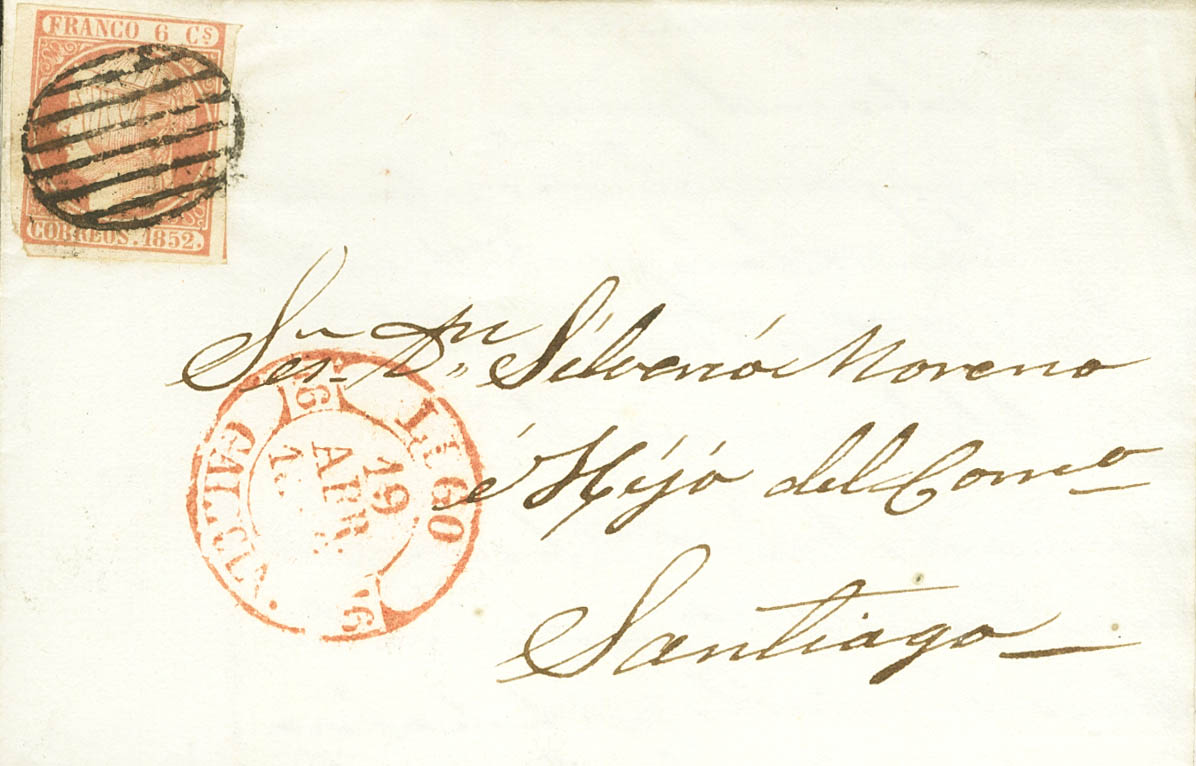 FRANCO 6 Cs
CORREOS. 1852.
Sres. Dn. Silverio Moreno
é Hijo del Como
Santiago
LUGO
19
ABR.
GALICIA.
16